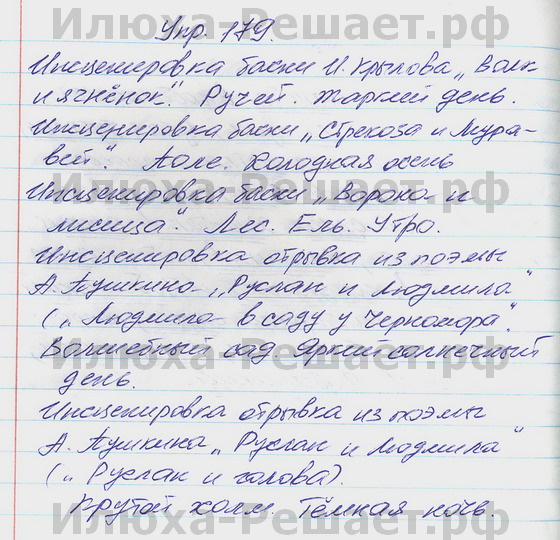 Илюха-Решает.рф
Упр. 179.
Инсценировка басни И. Крылова „Волк
и ягнёнок". Ручей. Жаркий день.
Илюха-Решает.рф
Инсценировка басни „Стрекоза и Мура-
вей". Поле. Холодная осень
Илюха-Решает.рф
Инсценировка басни „Ворона и
лисица". Лес. Ель. Утро.
Инсценировка отрывка из поэмы
А. Пушкина „Руслан и Людмила"
Илюха-Решает.рф
(„Людмила в саду у Черномора".
Волшебный сад. Яркий солнечный
Илюха-Решает.рф
день.
Инсценировка отрывка из поэмы
А. Пушкина „Руслан и Людмила"
Илюха-Решает.рф
(„Руслан и голова).
Крутой холм. Тёмная ночь.
Илюха-Решает.рф